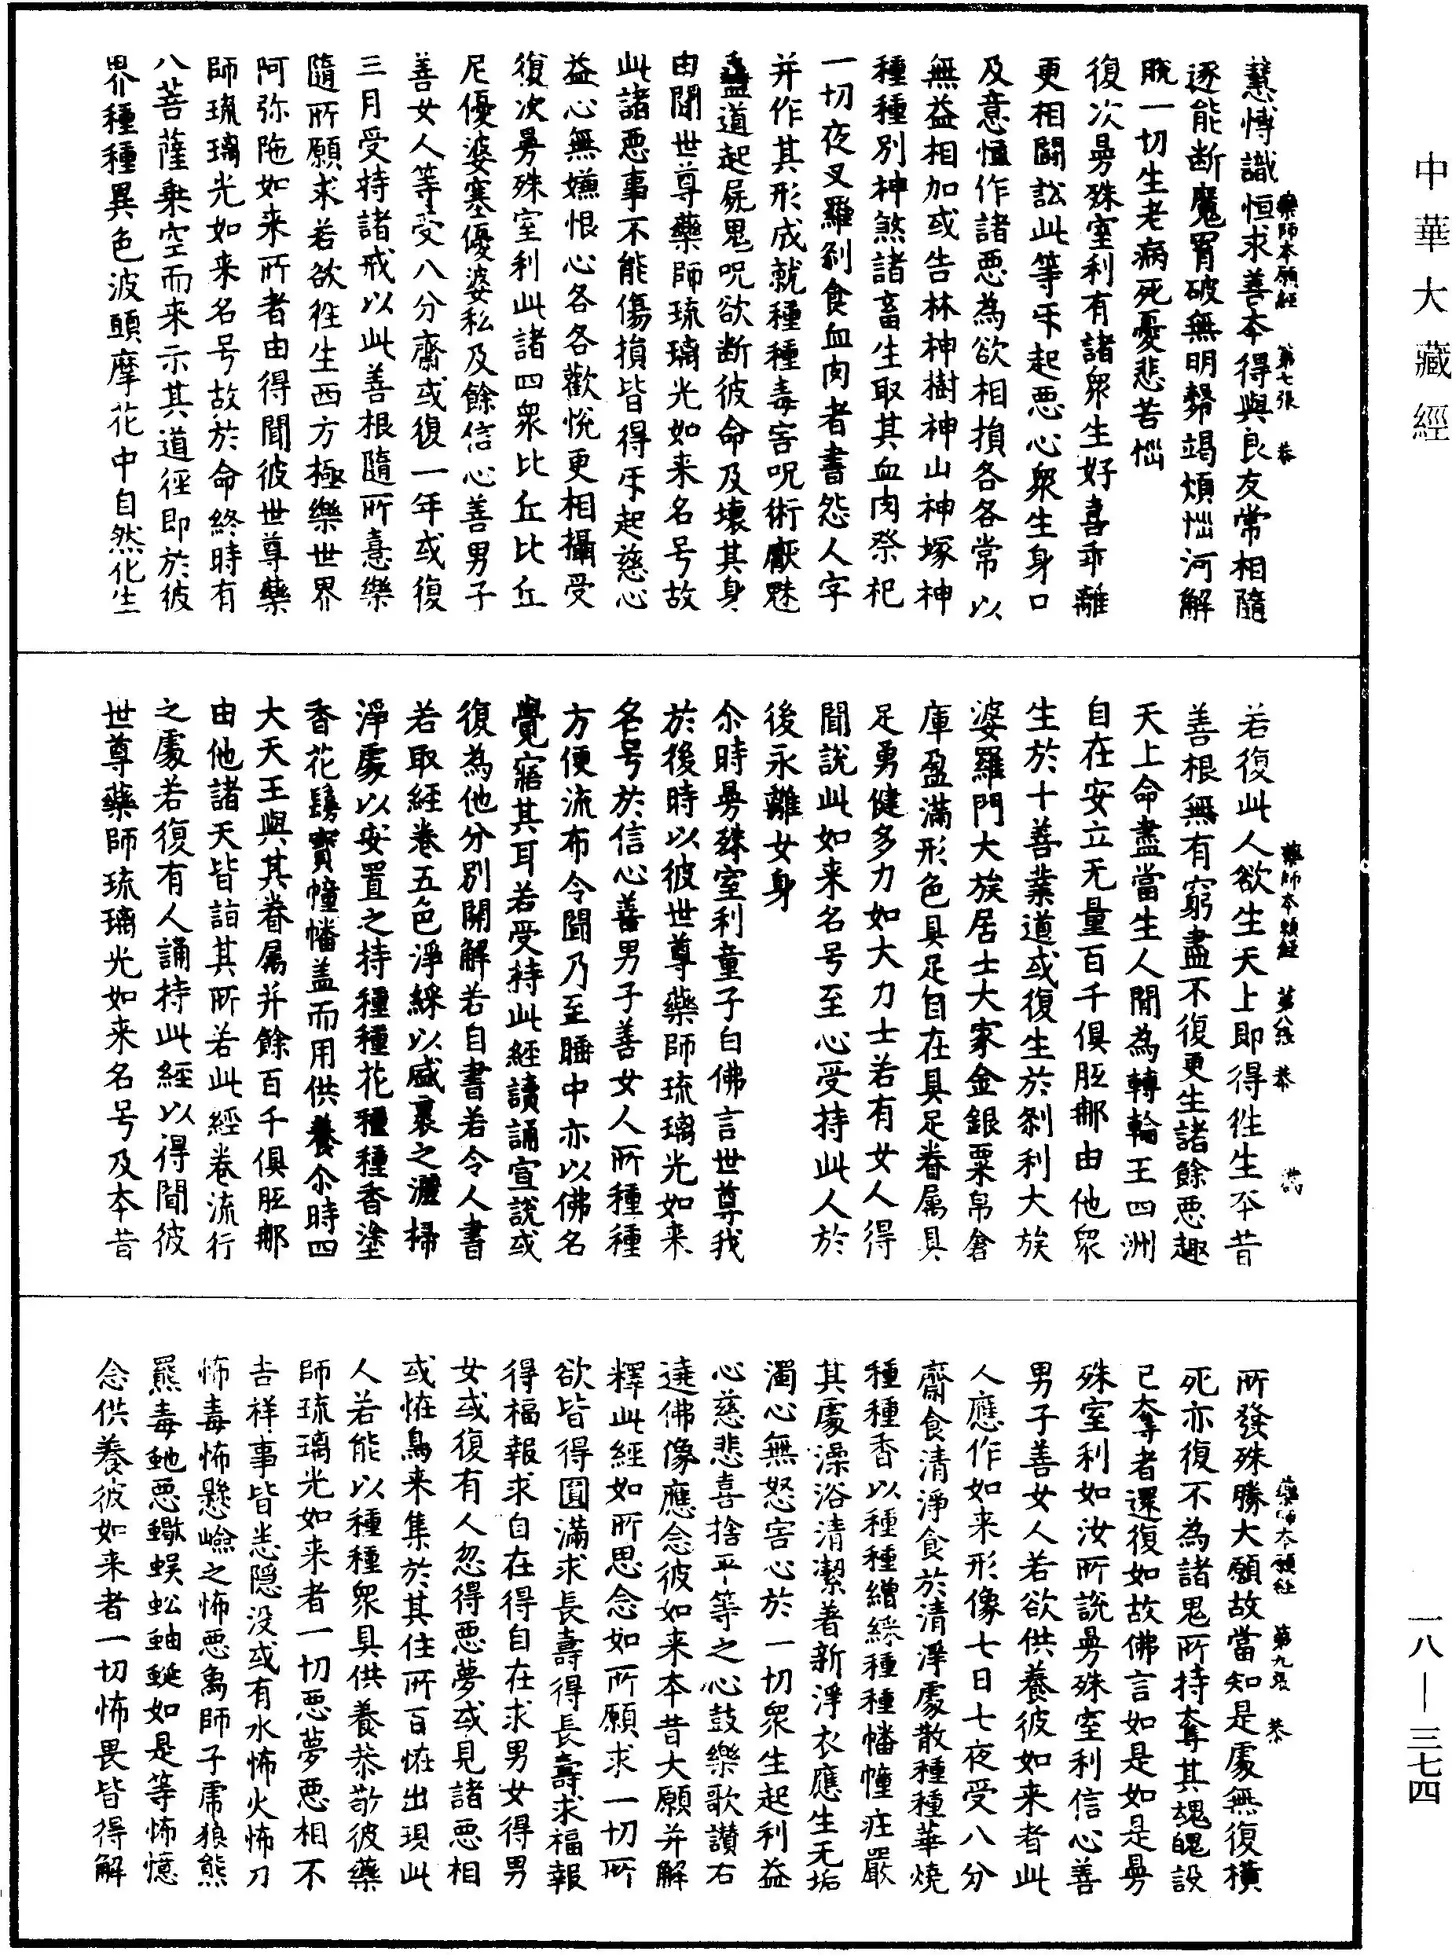 中華大藏經
慧愽識恒求善本得與良友常相隨
逐能断魔罥破無明㲉竭煩惱河解
脫一切生老病死憂悲苦惱
復次曼殊室利有諸衆生好喜乖離
更相鬪訟此等互起惡心衆生身口
及意恒作諸惡為欲相損各各常以
無益相加或告林神樹神山神塚神
種種別神煞諸畜生取其血肉祭祀
一切夜叉羅剎食血肉者書怨人字
并作其形成就種種毒害呪術厭魅
蠱道起屍鬼呪欲断彼命及壞其身
由聞世尊藥師琉璃光如来名号故
此諸惡事不能傷損皆得互起慈心
益心無嫌恨心各各歡悅更相攝受
復次曼殊室利此諸四衆比丘比丘
尼優婆塞優婆私及餘信心善男子
善女人等受八分齋或復一年或復
三月受持諸戒以此善根隨所憙樂
隨所願求若欲往生西方極樂世界
阿弥陁如来所者由得聞彼世尊藥
師琉璃光如来名号故於命終時有
八菩薩乗空而来示其道徑即於彼
界種種異色波頭摩花中自然化生
藥師本願經 第七張 恭
若復此人欲生天上即得往生本昔
善根無有窮盡不復更生諸餘惡趣
天上命盡當生人閒為轉輪王四洲
自在安立无量百千俱胝那由他衆
生於十善業道或復生於剎利大族
婆羅門大族居士大家金銀粟帛倉
庫盈滿形色具足自在具足眷属具
足勇健多力如大力士若有女人得
聞說此如来名号至心受持此人於
後永離女身
尒時曼殊室利童子白佛言世尊我
於後時以彼世尊藥師琉璃光如来
名号於信心善男子善女人所種種
方便流布令聞乃至睡中亦以佛名
覺寤其耳若受持此經讀誦宣說或
復為他分別開解若自書若令人書
若取經卷五色淨綵以盛裹之灑掃
淨處以安置之持種種花種種香塗
香花鬘寳幢幡盖而用供養尒時四
大天王與其眷属并餘百千俱胝那
由他諸天皆詣其所若此經卷流行
之處若復有人誦持此經以得聞彼
世尊藥師琉璃光如来名号及本昔
藥師本願經 第八張 恭
所發殊勝大願故當知是處無復橫
死亦復不為諸鬼所持奪其魂魄設
已奪者還復如故佛言如是如是曼
殊室利如汝所說曼殊室利信心善
男子善女人若欲供養彼如来者此
人應作如来形像七日七夜受八分
齋食清淨食於清淨處散種種華燒
種種香以種種繒綵種種幡幢庄嚴
其處澡浴清潔著新淨衣應生无垢
濁心無怒害心於一切衆生起利益
心慈悲喜捨平等之心鼓樂歌讚右
遶佛像應念彼如来本昔大願并解
釋此經如所思念如所願求一切所
欲皆得圓滿求長壽得長壽求福報
得福報求自在得自在求男女得男
女或復有人忽得惡夢或見諸惡相
或恠鳥来集於其住所百恠出現此
人若能以種種衆具供養恭敬彼藥
師琉璃光如来者一切惡夢惡相不
吉祥事皆悉隠没或有水怖火怖刀
怖毒怖懸嶮之怖惡象師子虎狼熊
羆毒虵惡蠍蜈蚣蚰蜒如是等怖憶
念供養彼如来者一切怖畏皆得解
藥師本願經 第九張 恭
一八—三七四